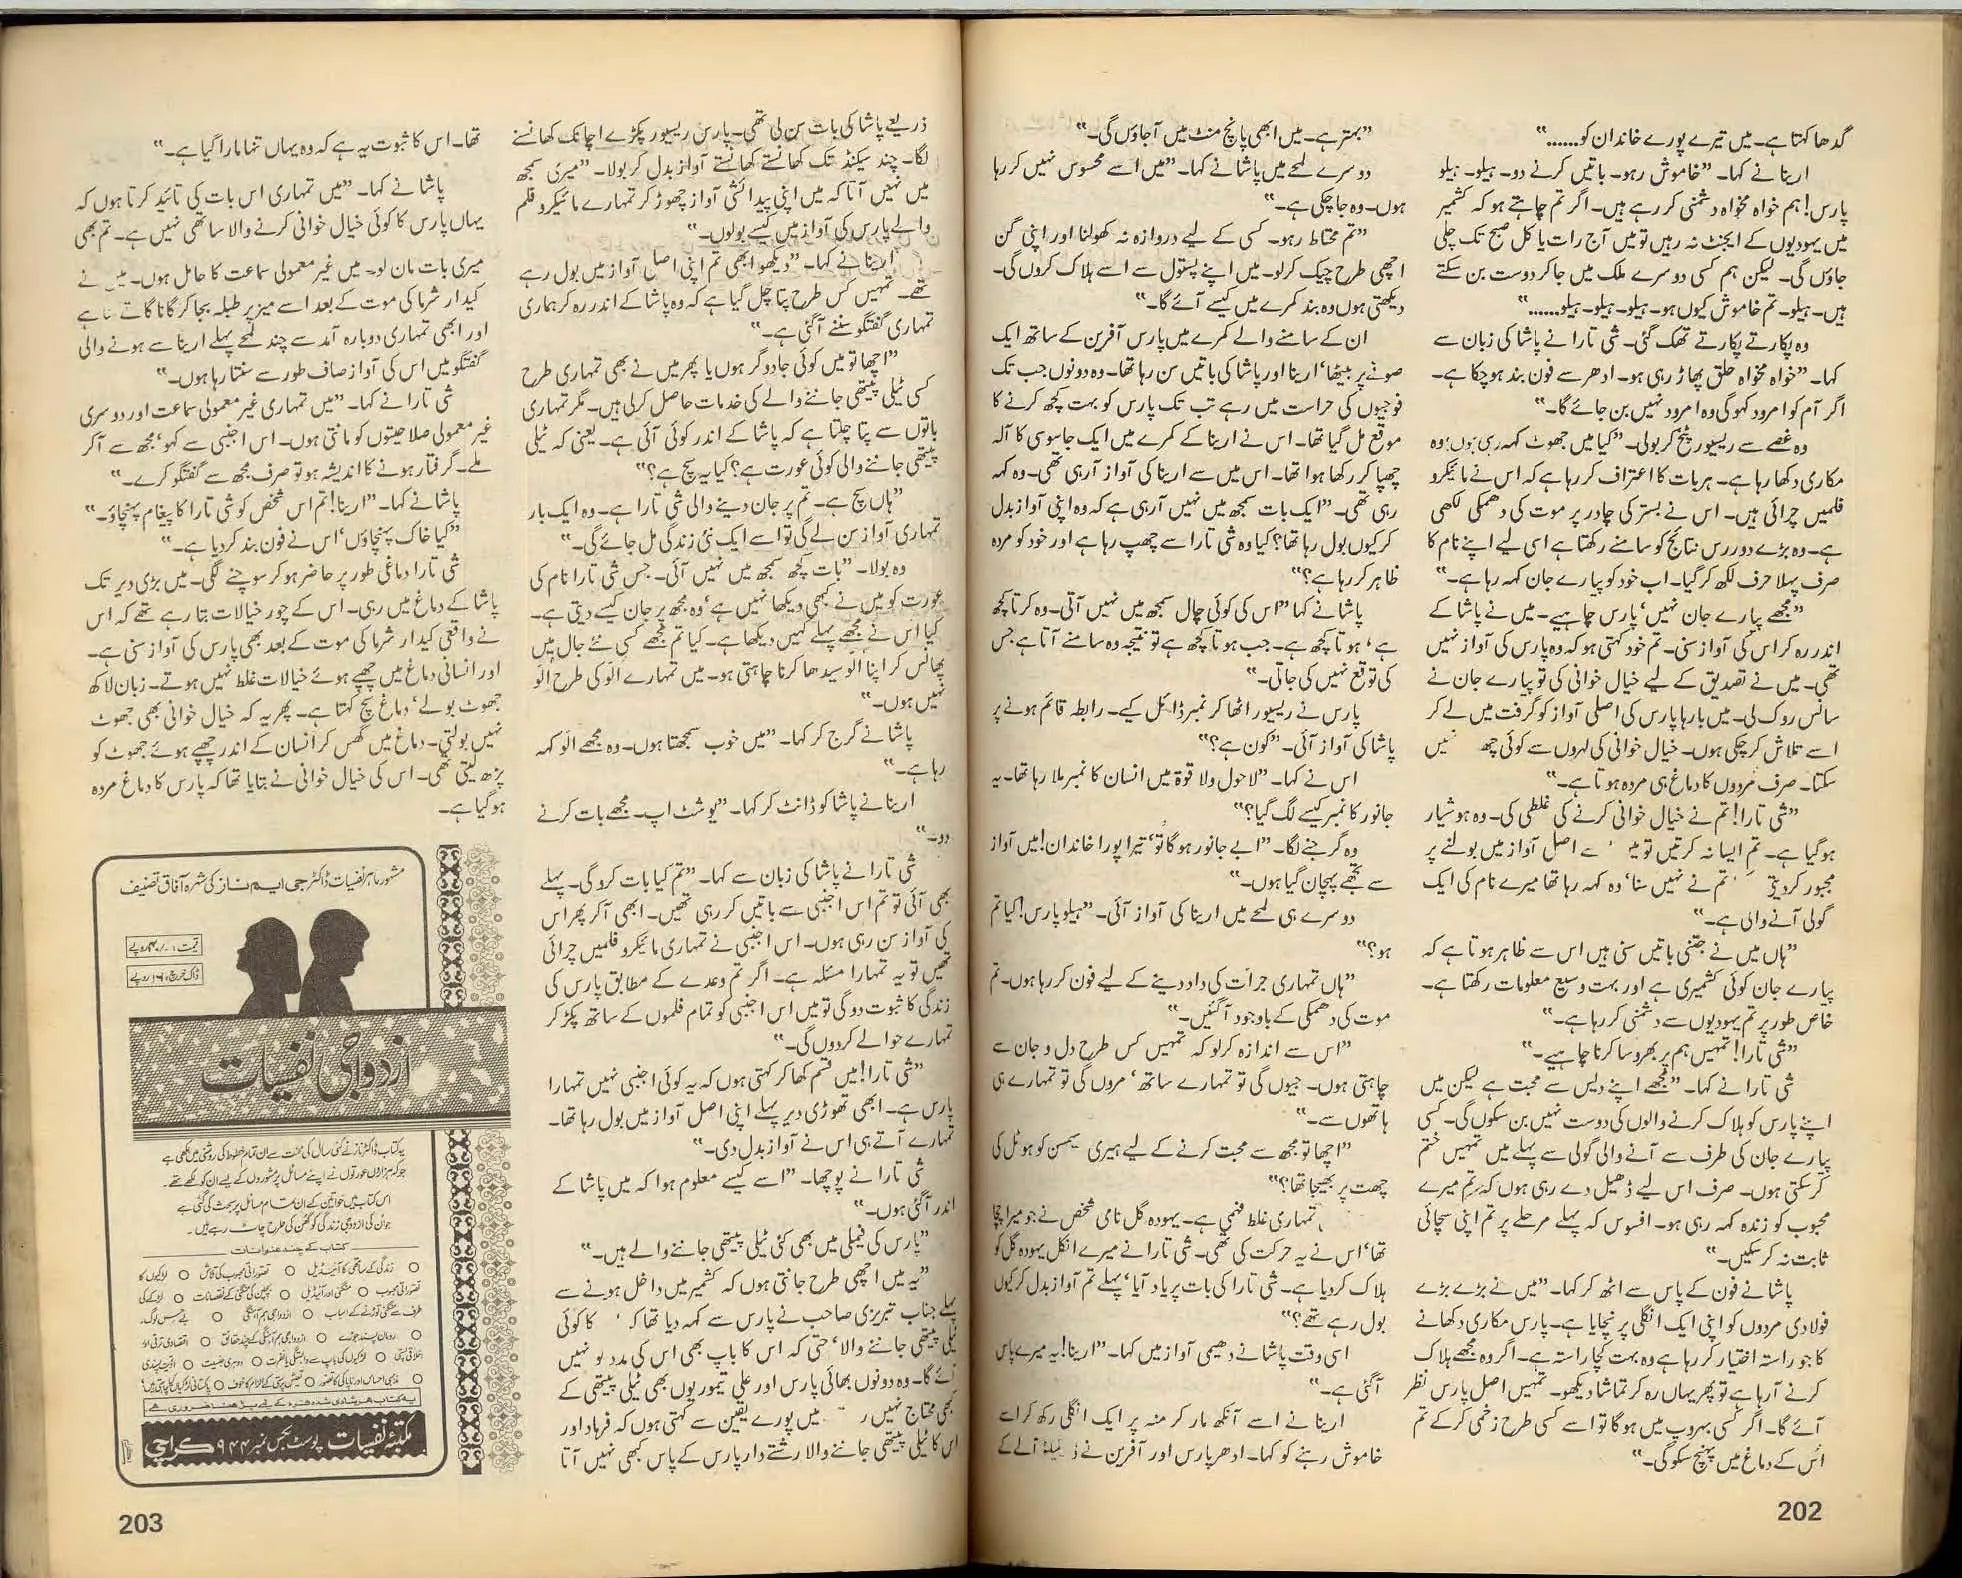 گدھا کہتا ہے۔ میں تیرے پورے خاندان کو......"
ارینا نے کہا۔ "خاموش رہو۔ باتیں کرنے دو۔ ہیلو۔ ہیلو
پارس! ہم خواہ مخواہ دشمنی کر رہے ہیں۔ اگر تم چاہتے ہو کہ کشمیر
میں یہودیوں کے ایجنٹ نہ رہیں تو میں آج رات یا کل صبح تک چلی
جاؤں گی۔ لیکن ہم کسی دوسرے ملک میں جا کر دوست بن سکتے
ہیں۔ ہیلو۔ تم خاموش کیوں ہو۔ ہیلو۔ ہیلو۔ ہیلو......"
وہ پکارتے پکارتے تھک گئی۔ شی تارا نے پاشا کی زبان سے
کہا۔ "خواہ مخواہ حلق پھاڑ رہی ہو۔ ادھر سے فون بند ہو چکا ہے۔
اگر آم کو امرود کہو گی وہ امرود نہیں بن جائے گا۔"
وہ غصے سے ریسیور پٹخ کر بولی۔ "کیا میں جھوٹ کہہ رہی ہوں؟ وہ
مکاری دکھا رہا ہے۔ ہر بات کا اعتراف کر رہا ہے کہ اس نے مائیکرو
فلمیں چرائی ہیں۔ اس نے بستر کی چادر پر موت کی دھمکی لکھی
ہے۔ وہ بڑے دور رس نتائج کو سامنے رکھتا ہے اسی لیے اپنے نام کا
صرف پہلا حرف لکھ کر گیا۔ اب خود کو پیارے جان کہہ رہا ہے۔"
"مجھے پیارے جان نہیں' پارس چاہیے۔ میں نے پاشا کے
اندر رہ کر اس کی آواز سنی۔ تم خود کہتی ہو کہ وہ پارس کی آواز نہیں
تھی۔ میں نے تصدیق کے لیے خیال خوانی کی تو پیارے جان نے
سانس روک لی۔ میں بارہا پارس کی اصلی آواز کو گرفت میں لے کر
اسے تلاش کر چکی ہوں۔ خیال خوانی کی لہروں سے کوئی چھ نہیں
سکتا۔ صرف مردوں کا دماغ ہی مردہ ہوتا ہے۔"
"شی تارا! تم نے خیال خوانی کرنے کی غلطی کی۔ وہ ہوشیار
ہو گیا ہے۔ تم ایسا نہ کرتیں تو میں اسے اصل آواز میں بولنے پر
مجبور کر دیتی۔ تم نے نہیں سنا' وہ کہہ رہا تھا میرے نام کی ایک
گولی آنے والی ہے۔"
"ہاں میں نے جتنی باتیں سنی ہیں اس سے ظاہر ہوتا ہے کہ
پیارے جان کوئی کشمیری ہے اور بہت وسیع معلومات رکھتا ہے۔
خاص طور پر تم یہودیوں سے دشمنی کر رہا ہے۔"
"شی تارا! تمہیں ہم پر بھروسا کرنا چاہیے۔"
شی تارا نے کہا۔ "مجھے اپنے دیس سے محبت ہے لیکن میں
اپنے پارس کو ہلاک کرنے والوں کی دوست نہیں بن سکوں گی۔ کسی
پیارے جان کی طرف سے آنے والی گولی سے پہلے میں تمہیں ختم
کر سکتی ہوں۔ صرف اس لیے ڈھیل دے رہی ہوں کہ تم میرے
محبوب کو زندہ کہہ رہی ہو۔ افسوس کہ پہلے مرحلے پر تم اپنی سچائی
ثابت نہ کر سکیں۔"
پاشا نے فون کے پاس سے اٹھ کر کہا۔ "میں نے بڑے بڑے
فولادی مردوں کو اپنی ایک انگلی پر نچایا ہے۔ پارس مکاری دکھانے
کا جو راستہ اختیار کر رہا ہے وہ بہت کچا راستہ ہے۔ اگر وہ مجھے ہلاک
کرنے آ رہا ہے تو پھر یہاں رہ کر تماشا دیکھو۔ تمہیں اصل پارس نظر
آئے گا۔ اگر کسی بہروپ میں ہو گا تو اسے کسی طرح زخمی کر کے تم
اس کے دماغ میں پہنچ سکو گی۔"
"بہتر ہے۔ میں ابھی پانچ منٹ میں آ جاؤں گی۔"
دوسرے لمحے میں پاشا نے کہا۔ "میں اسے محسوس نہیں کر رہا
ہوں۔ وہ جا چکی ہے۔"
"تم محتاط رہو۔ کسی کے لیے دروازہ نہ کھولنا اور اپنی گن
اچھی طرح چیک کر لو۔ میں اپنے پستول سے اسے ہلاک کروں گی۔
دیکھتی ہوں وہ بند کمرے میں کیسے آئے گا۔"
ان کے سامنے والے کمرے میں پارس آفرین کے ساتھ ایک
صوفے پر بیٹھا' ارینا اور پاشا کی باتیں سن رہا تھا۔ وہ دونوں جب تک
فوجیوں کی حراست میں رہے تب تک پارس کو بہت کچھ کرنے کا
موقع مل گیا تھا۔ اس نے ارینا کے کمرے میں ایک جاسوسی کا آلہ
چھپا کر رکھا ہوا تھا۔ اس میں سے ارینا کی آواز آ رہی تھی۔ وہ کہہ
رہی تھی۔ "ایک بات سمجھ میں نہیں آ رہی ہے کہ وہ اپنی آواز بدل
کر کیوں بول رہا تھا؟ کیا وہ شی تارا سے چھپ رہا ہے اور خود کو مردہ
ظاہر کر رہا ہے؟"
پاشا نے کہا "اس کی کوئی چال سمجھ میں نہیں آتی۔ وہ کرتا کچھ
ہے' ہوتا کچھ ہے۔ جب ہوتا کچھ ہے تو نتیجہ وہ سامنے آتا ہے جس
کی توقع نہیں کی جاتی۔"
پارس نے ریسیور اٹھا کر نمبر ڈائل کیے۔ رابطہ قائم ہونے پر
پاشا کی آواز آئی۔ "کون ہے؟"
اس نے کہا۔ "لاحول ولا قوۃ میں انسان کا نمبر ملا رہا تھا۔ یہ
جانور کا نمبر کیسے لگ گیا؟"
وہ گرجنے لگا۔ "ابے جانور ہو گا تُو' تیرا پورا خاندان! میں آواز
سے تجھے پہچان گیا ہوں۔"
دوسرے ہی لمحے میں ارینا کی آواز آئی۔ "ہیلو پارس! کیا تم
ہو؟"
"ہاں تمہاری جرات کی داد دینے کے لیے فون کر رہا ہوں۔ تم
موت کی دھمکی کے باوجود آ گئیں۔"
"اس سے اندازہ کر لو کہ تمہیں کس طرح دل و جان سے
چاہتی ہوں۔ جیوں گی تو تمہارے ساتھ' مروں گی تو تمہارے ہی
ہاتھوں سے۔"
"اچھا تو مجھ سے محبت کرنے کے لیے ہیری سیمسن کو ہوٹل کی
چھت پر بھیجا تھا؟"
تمہاری غلط فہمی ہے۔ یہودہ گل نامی شخص نے جو میرا چچا
تھا' اس نے یہ حرکت کی تھی۔ شی تارا نے میرے انکل یہودہ گل کو
ہلاک کر دیا ہے۔ شی تارا کی بات پر یاد آیا' پہلے تم آواز بدل کر کیوں
بول رہے تھے؟"
اسی وقت پاشا نے دھیمی آواز میں کہا۔ "ارینا! یہ میرے پاس
آ گئی ہے۔"
ارینا نے اسے آنکھ مار کر منہ پر ایک انگلی رکھ کر اسے
خاموش رہنے کو کہا۔ ادھر پارس اور آفرین نے آلے کے
202
ذریعے پاشا کی بات سن لی تھی۔ پارس ریسیور پکڑے اچانک کھانسنے
لگا۔ چند سیکنڈ تک کھانستے کھانستے آواز بدل کر بولا۔ "میری سمجھ
میں نہیں آتا کہ میں اپنی پیدائشی آواز چھوڑ کر تمہارے مائیکرو فلم
والے پارس کی آواز میں کیسے بولوں۔"
ارینا نے کہا۔ "دیکھو ابھی تم اپنی اصل آواز میں بول رہے
تھے۔ تمہیں کس طرح پتا چل گیا ہے کہ وہ پاشا کے اندر رہ کر ہماری
تمہاری گفتگو سننے آ گئی ہے۔"
"اچھا تو میں کوئی جادوگر ہوں یا پھر میں نے بھی تمہاری طرح
کسی ٹیلی پیتھی جاننے والے کی خدمات حاصل کر لی ہیں۔ مگر تمہاری
باتوں سے پتا چلتا ہے کہ پاشا کے اندر کوئی آئی ہے۔ یعنی کہ ٹیلی
پیتھی جاننے والی کوئی عورت ہے؟ کیا یہ سچ ہے؟"
"ہاں سچ ہے۔ تم پر جان دینے والی شی تارا ہے۔ وہ ایک بار
تمہاری آواز سن لے گی تو اسے ایک نئی زندگی مل جائے گی۔"
وہ بولا۔ "بات کچھ سمجھ میں نہیں آئی۔ جس شی تارا نام کی
عورت کو میں نے کبھی دیکھا نہیں ہے' وہ مجھ پر جان کیسے دیتی ہے۔
کیا اس نے مجھے پہلے کہیں دیکھا ہے۔ کیا تم مجھے کسی نئے جال میں
پھانس کر اپنا الّو سیدھا کرنا چاہتی ہو۔ میں تمہارے الّو کی طرح الّو
نہیں ہوں۔"
پاشا نے گرج کر کہا۔ "میں خوب سمجھتا ہوں۔ وہ مجھے الّو کہہ
رہا ہے۔"
ارینا نے پاشا کو ڈانٹ کر کہا۔ "یو شٹ اپ۔ مجھے بات کرنے
دو۔"
شی تارا نے پاشا کی زبان سے کہا۔ "تم کیا بات کرو گی۔ پہلے
بھی آئی تو تم اس اجنبی سے باتیں کر رہی تھیں۔ ابھی آ کر پھر اس
کی آواز سن رہی ہوں۔ اس اجنبی نے تمہاری مائیکرو فلمیں چرائی
تھیں تو یہ تمہارا مسئلہ ہے۔ اگر تم وعدے کے مطابق پارس کی
زندگی کا ثبوت دو گی تو میں اس اجنبی کو تمام فلموں کے ساتھ پکڑ کر
تمہارے حوالے کر دوں گی۔"
"شی تارا! میں قسم کھا کر کہتی ہوں کہ یہ کوئی اجنبی نہیں تمہارا
پارس ہے۔ ابھی تھوڑی دیر پہلے اپنی اصل آواز میں بول رہا تھا۔
تمہارے آتے ہی اس نے آواز بدل دی۔"
شی تارا نے پوچھا۔ "اسے کیسے معلوم ہوا کہ میں پاشا کے
اندر آ گئی ہوں۔"
"پارس کی فیملی میں بھی کئی ٹیلی پیتھی جاننے والے ہیں۔"
"یہ میں اچھی طرح جانتی ہوں کہ کشمیر میں داخل ہونے سے
پہلے جناب تبریزی صاحب نے پارس سے کہہ دیا تھا کہ کا کوئی
ٹیلی پیتھی جاننے والا' حتیٰ کہ اس کا باپ بھی اس کی مدد کو نہیں
آئے گا۔ وہ دونوں بھائی پارس اور علی تیمور یوں بھی ٹیلی پیتھی کے
کبھی محتاج نہیں میں پورے یقین سے کہتی ہوں کہ فرہاد اور
اس کا ٹیلی پیتھی جاننے والا رشتے دار پارس کے پاس کبھی نہیں آتا
تھا۔ اس کا ثبوت یہ ہے کہ وہ یہاں تنہا مارا گیا ہے۔"
پاشا نے کہا۔ "میں تمہاری اس بات کی تائید کرتا ہوں کہ
یہاں پارس کا کوئی خیال خوانی کرنے والا ساتھی نہیں ہے۔ تم بھی
میری بات مان لو۔ میں غیر معمولی سماعت کا حامل ہوں۔ میں نے
کیدار شرما کی موت کے بعد اسے میز پر طبلہ بجا کر گانا گاتے سنا ہے
اور ابھی تمہاری دوبارہ آمد سے چند لمحے پہلے ارینا سے ہونے والی
گفتگو میں اس کی آواز صاف طور سے سنتا رہا ہوں۔"
شی تارا نے کہا۔ "میں تمہاری غیر معمولی سماعت اور دوسری
غیر معمولی صلاحیتوں کو مانتی ہوں۔ اس اجنبی سے کہو' مجھ سے آ کر
ملے۔ گرفتار ہونے کا اندیشہ ہو تو صرف مجھ سے گفتگو کرے۔"
پاشا نے کہا۔ "ارینا! تم اس شخص کو شی تارا کا پیغام پہنچاؤ۔"
"کیا خاک پہنچاؤں' اس نے فون بند کر دیا ہے۔"
شی تارا دماغی طور پر حاضر ہو کر سوچنے لگی۔ میں بڑی دیر تک
پاشا کے دماغ میں رہی۔ اس کے چور خیالات بتا رہے تھے کہ اس
نے واقعی کیدار شرما کی موت کے بعد بھی پارس کی آواز سنی ہے۔
اور انسانی دماغ میں چھپے ہوئے خیالات غلط نہیں ہوتے۔ زبان لاکھ
جھوٹ بولے' دماغ سچ کہتا ہے۔ پھر یہ کہ خیال خوانی بھی جھوٹ
نہیں بولتی۔ دماغ میں گھس کر انسان کے اندر چھپے ہوئے جھوٹ کو
پڑھ لیتی تھی۔ اس کی خیال خوانی نے بتایا تھا کہ پارس کا دماغ مردہ
ہو گیا ہے۔
مشہور ماہر نفسیات ڈاکٹر جی ایم ناز کی شہرہ آفاق تصنیف
ڈاک خرچ ۱۶ روپے
ازدواجی نفسیات
یہ کتاب ڈاکٹر ناز نے کئی سال کی محنت سے ان تمام خطوط کی روشنی میں لکھی ہے
جو کہ ہزاروں عورتوں نے اپنے مسائل پر مشوروں کے لیے ان کو لکھے تھے۔
اس کتاب میں خواتین کے ان تمام مسائل پر بحث کی گئی ہے
جو ان کی ازدواجی زندگی کو گھن کی طرح چاٹ رہے ہیں۔
کتاب کے چند عنوانات
زندگی کے ساتھی کا آئیڈیل ○ تصوراتی محبوب کی تلاش ○ لڑکیوں کا
تصوراتی محبوب ○ منگنی اور آئیڈیل ○ بچپن کی منگنی کے نقصانات ○ لڑکے کی
طرف سے منگنی توڑنے کے اسباب ○ ازدواجی ہم آہنگی ○ بے حس لوگ
رومان پسند جوڑے ○ ازدواجی ہم آہنگی کے چند حقائق ○
○ لڑکیوں کی باپ سے وابستگی یا نفرت ○ دوہری شخصیت ○ اذیت پسندی
یہ کتاب ہر شادی شدہ جوڑے کے لیے پڑھنا ضروری ہے
مکتبہ نفسیات پوسٹ بکس نمبر ۹۴۴ کراچی
203